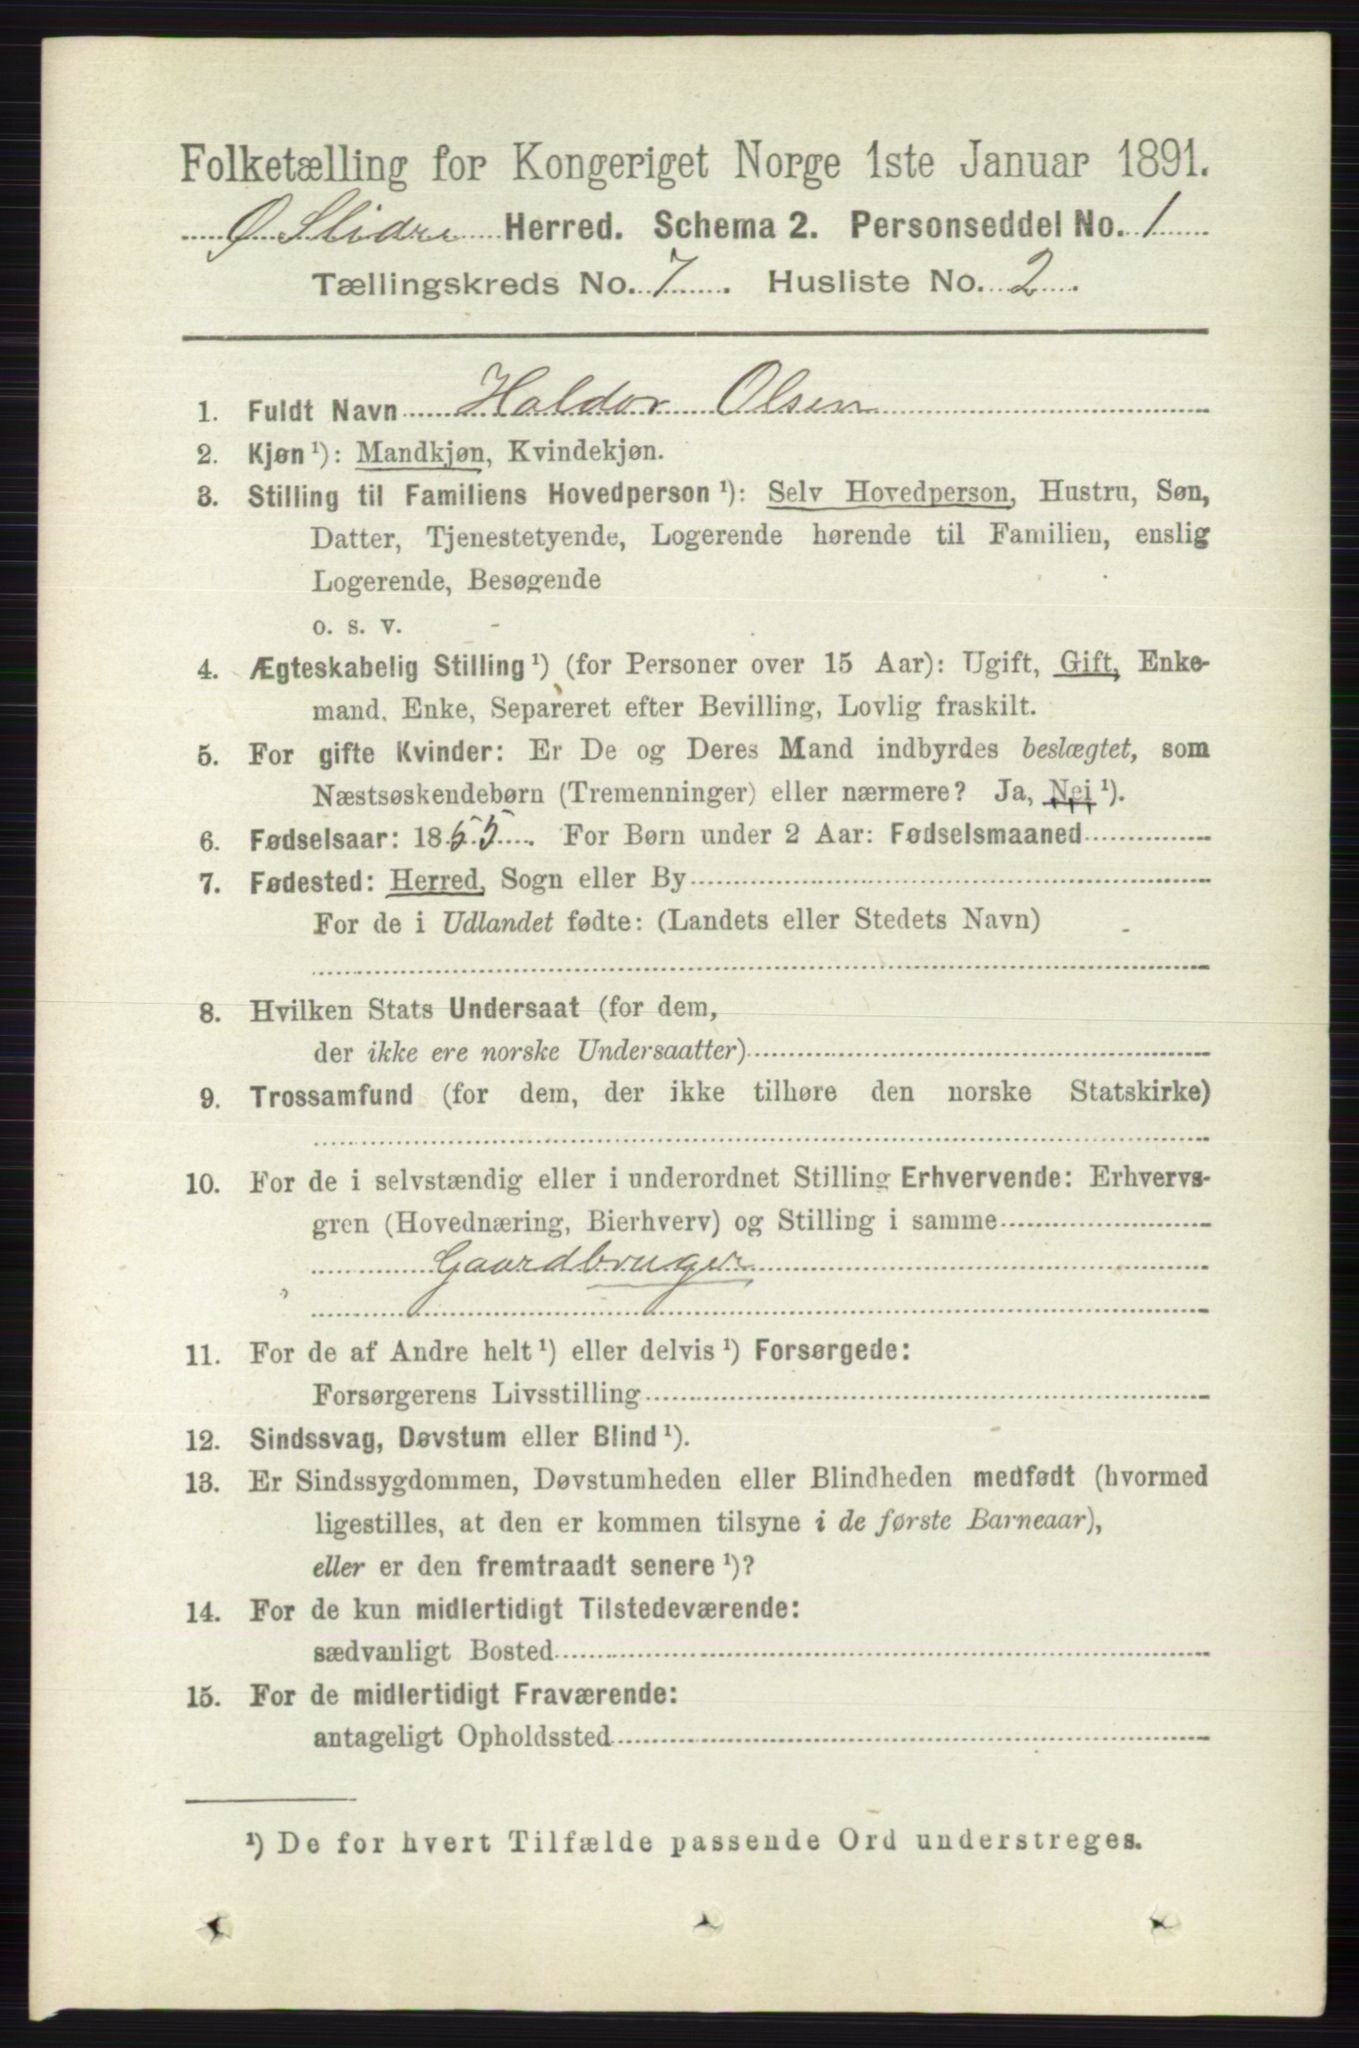 Folketælling for Kongeriget Norge 1ste Januar 1891.
Ø. Slidre Herred. Schema 2. Personseddel No. 1
Tællingskreds No. 7. Husliste No. 2.
1. Fuldt Navn Haldor Olsen
2. Kjøn ¹): Mandkjøn, Kvindekjøn.
3. Stilling til Familiens Hovedperson ¹): Selv Hovedperson, Hustru, Søn,
Datter, Tjenestetyende, Logerende hørende til Familien, enslig
Logerende, Besøgende
o. s. v.
4. Ægteskabelig Stilling ¹) (for Personer over 15 Aar): Ugift, Gift, Enke-
mand, Enke, Separeret efter Bevilling, Lovlig fraskilt.
5. For gifte Kvinder: Er De og Deres Mand indbyrdes beslægtet, som
Næstsøskendebørn (Tremenninger) eller nærmere? Ja, Nei ¹).
6. Fødselsaar: 1855. For Børn under 2 Aar: Fødselsmaaned
7. Fødested: Herred, Sogn eller By
For de i Udlandet fødte: (Landets eller Stedets Navn)
8. Hvilken Stats Undersaat (for dem,
der ikke ere norske Undersaatter)
9. Trossamfund (for dem, der ikke tilhøre den norske Statskirke)
10. For de i selvstændig eller i underordnet Stilling Erhvervende: Erhvervs-
gren (Hovednæring, Bierhverv) og Stilling i samme
Gaardbruger
11. For de af Andre helt ¹) eller delvis ¹) Forsørgede:
Forsørgerens Livsstilling
12. Sindssvag, Døvstum eller Blind ¹).
13. Er Sindssygdommen, Døvstumheden eller Blindheden medfødt (hvormed
ligestilles, at den er kommen tilsyne i de første Barneaar),
eller er den fremtraadt senere ¹)?
14. For de kun midlertidigt Tilstedeværende:
sædvanligt Bosted
15. For de midlertidigt Fraværende:
antageligt Opholdssted
¹) De for hvert Tilfælde passende Ord understreges.